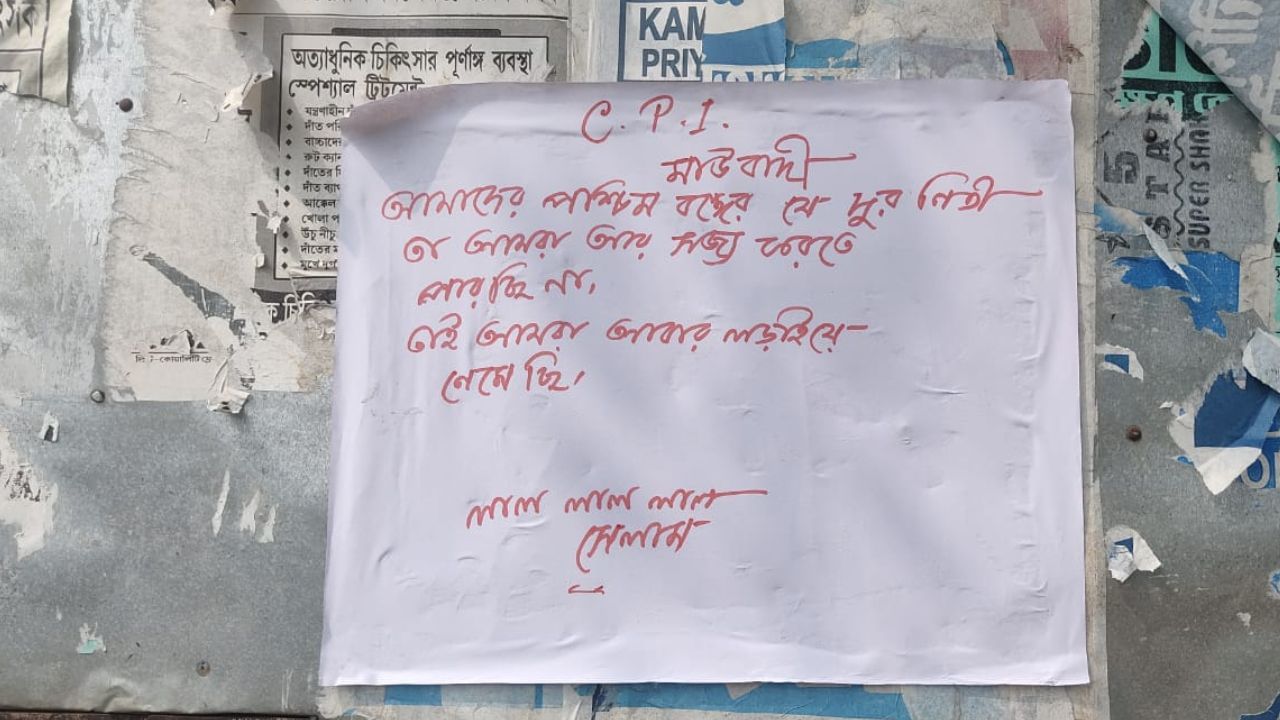 অত্যাধুনিক চিকিৎসার পূর্ণাঙ্গ ব্যবস্থা
স্পেশ্যাল ট্রিটমেন্ট
যন্ত্রণাহীন
দাঁত
রুট
দাঁতের
দাঁত
আক্কেল
খোলা
উঁচু নীচু
দাঁতের
KAM
PRIY
5 STAR
SUPER SHAR
C. P. I.
মাউবাদী
আমাদের পশ্চিম বঙ্গের যে দুর নিতী
তা আমরা আর সজ্য করতে
পারছি না,
তাই আমরা আবার লড়াইয়ে
নেমেছি,
লাল লাল লাল
সেলাম